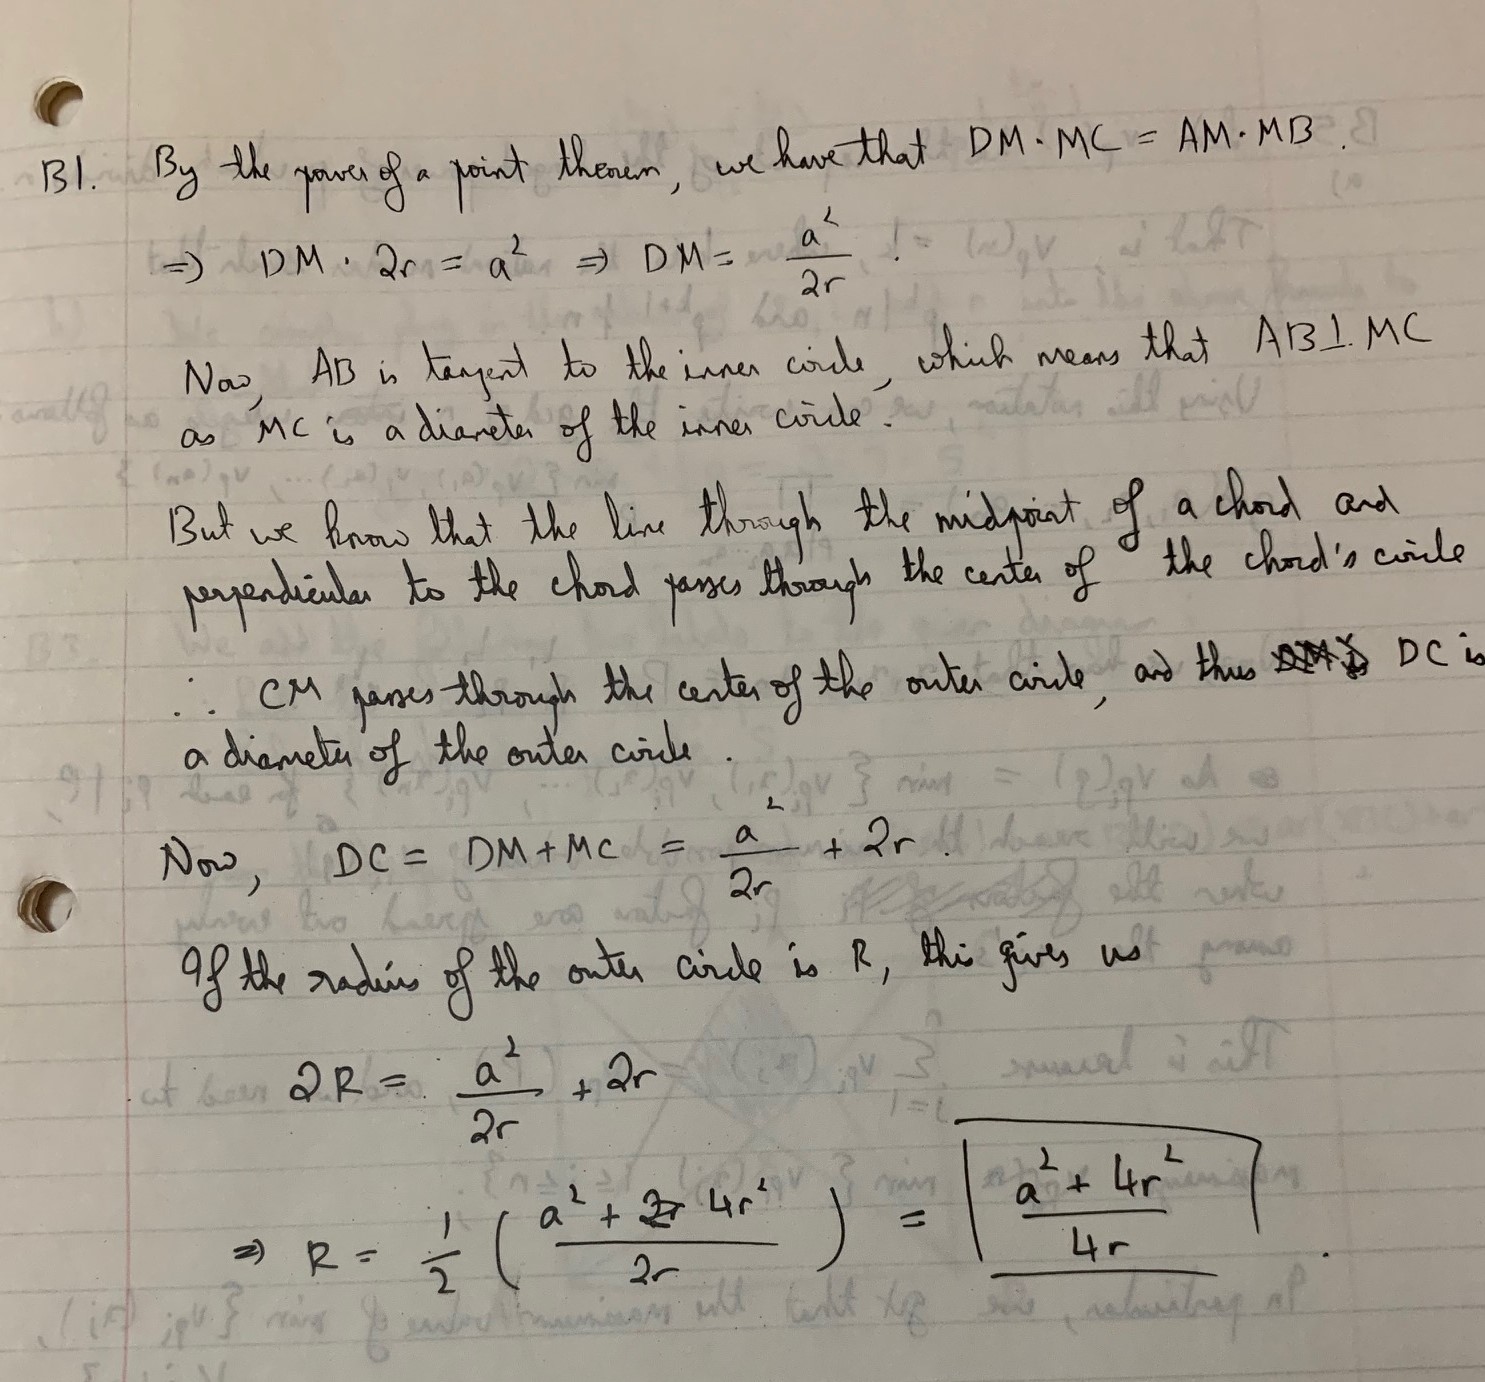 B1. By the power of a point theorem, we have that DM · MC = AM · MB .
⇒ DM · 2r = a² ⇒ DM = a²/2r .
Now, AB is tangent to the inner circle, which means that AB ⊥ MC
as MC is a diameter of the inner circle.
But we know that the line through the midpoint of a chord and
perpendicular to the chord passes through the center of the chord's circle
∴ CM passes through the center of the outer circle, and thus DC is
a diameter of the outer circle .
Now, DC = DM + MC = a²/2r + 2r .
If the radius of the outer circle is R, this gives us
2R = a²/2r + 2r
⇒ R = 1/2 ( (a² + 4r²)/2r ) = (a² + 4r²)/4r .